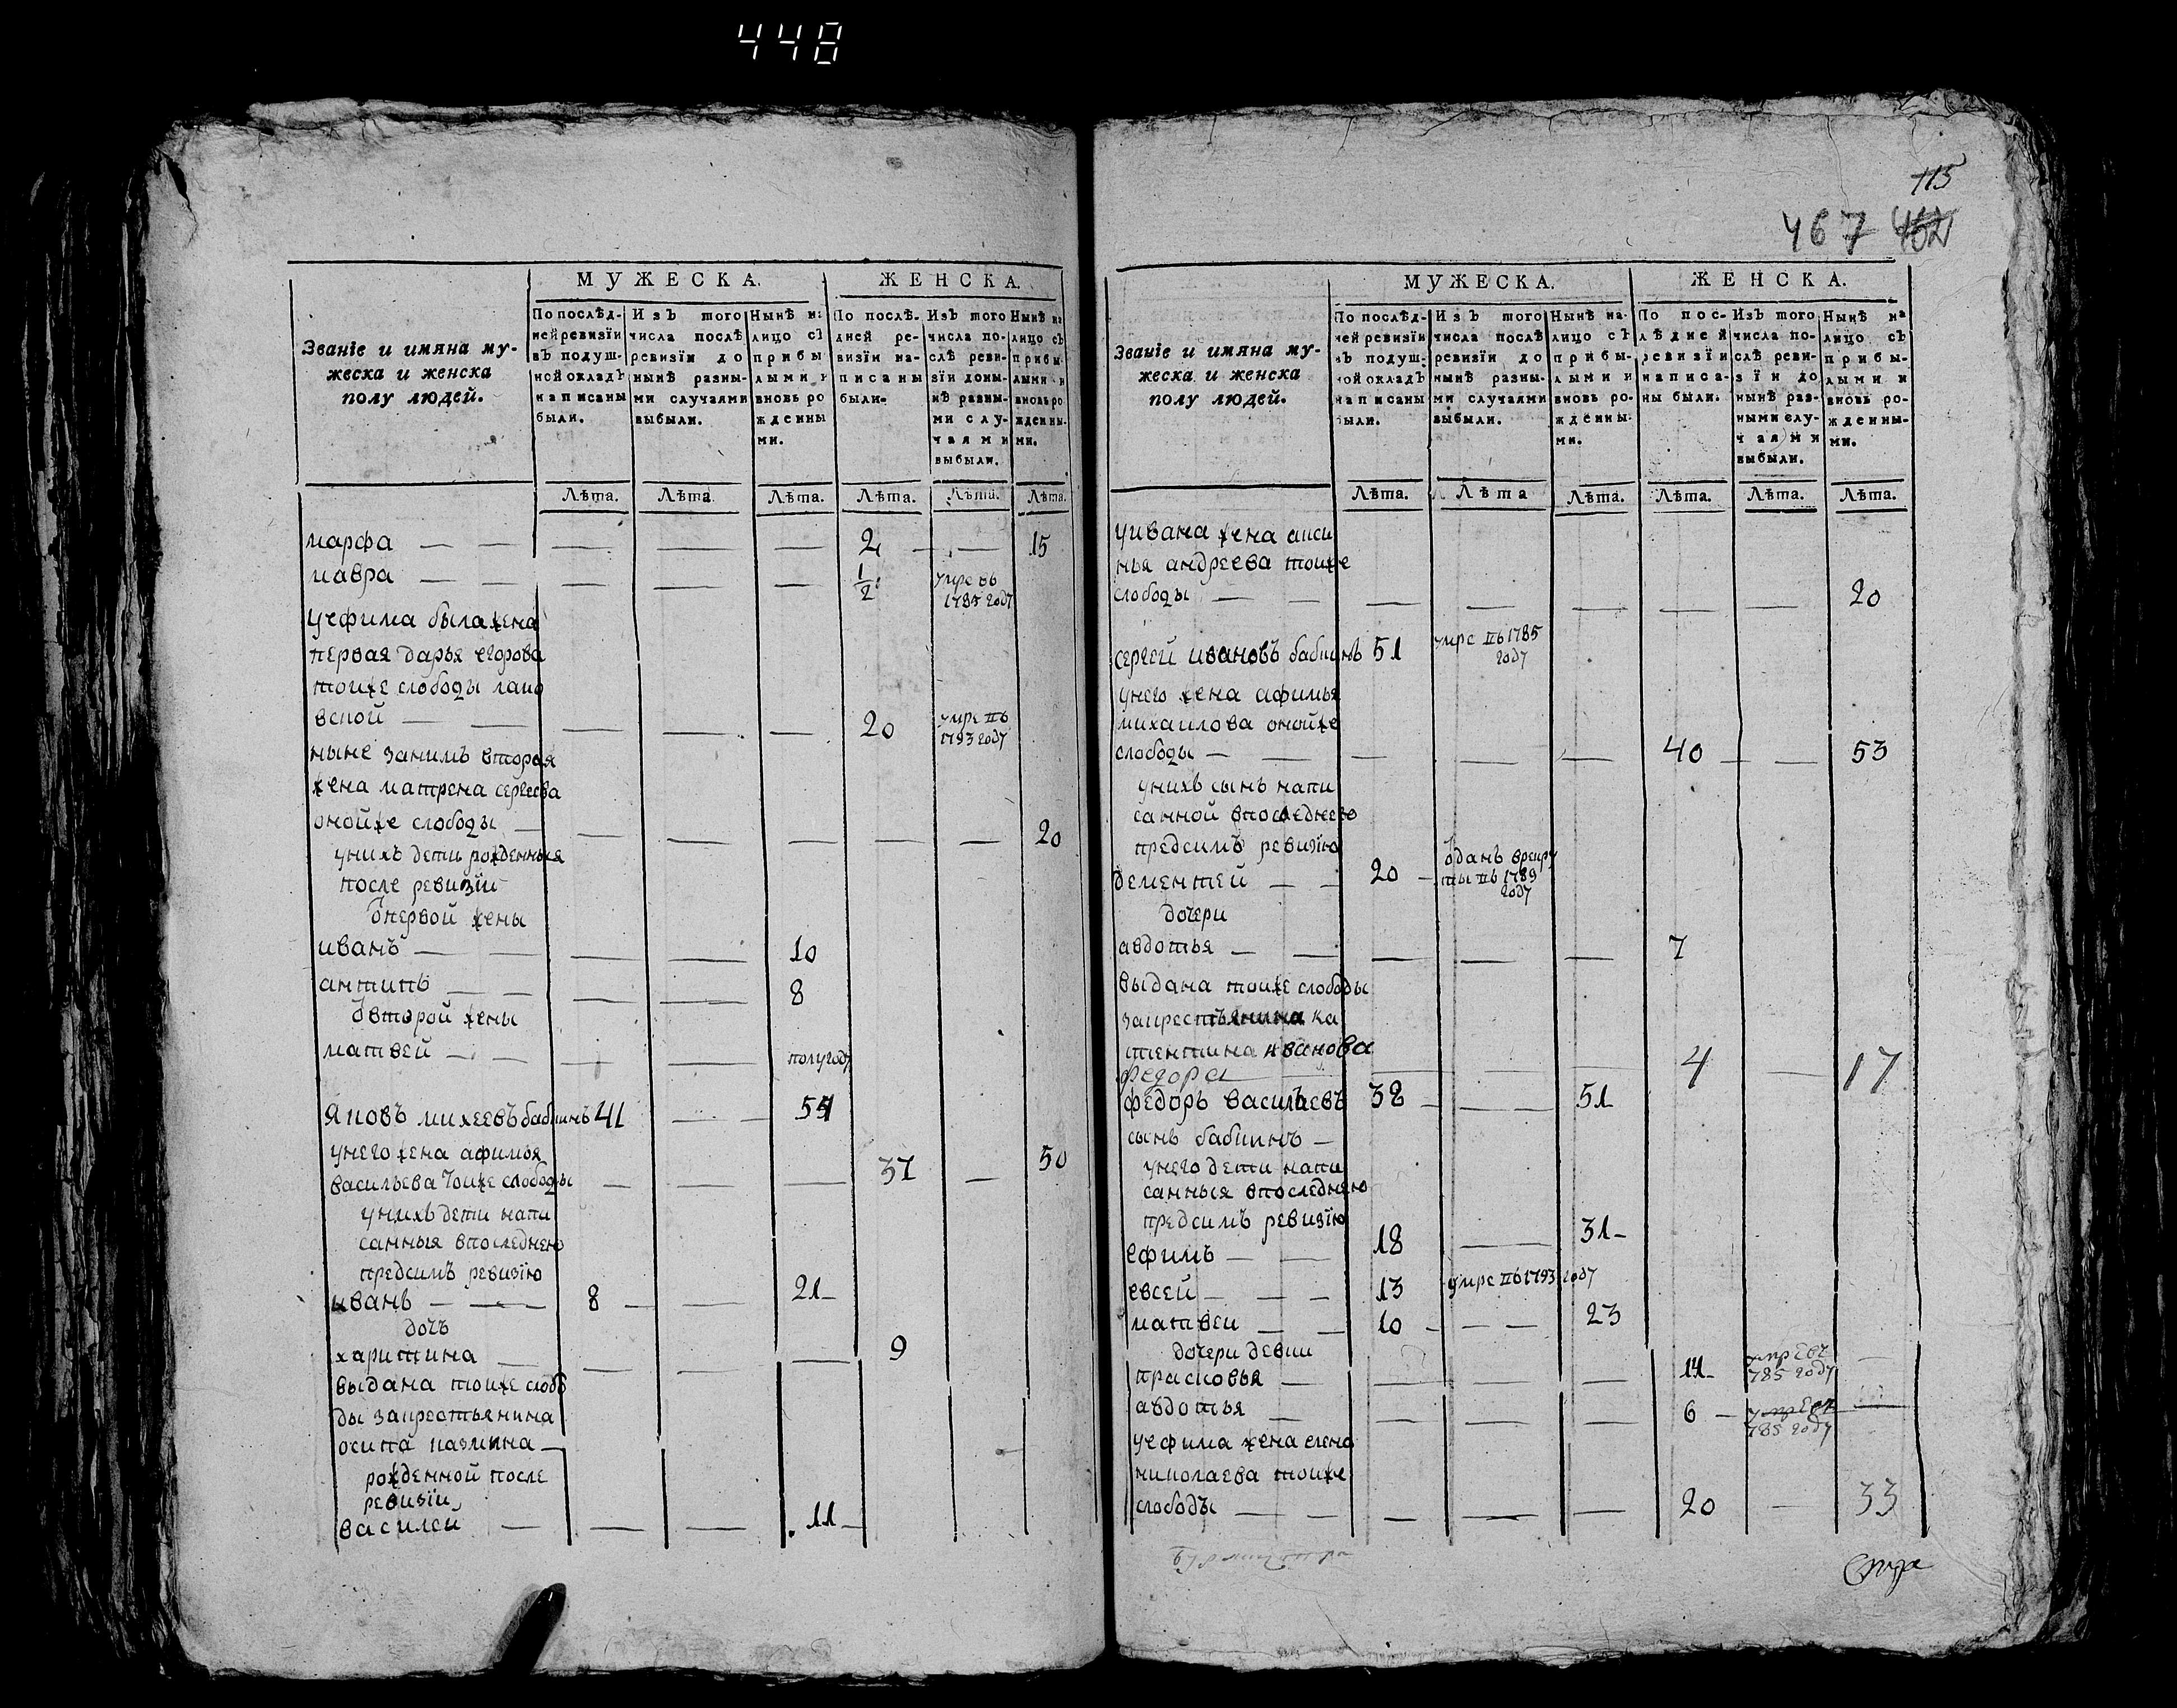 448
МУЖЕСКА. ЖЕНСКА.
Званіе и имяна му-
жеска и женска
полу людей.
По послѣд-
ней ревизіи
въ подуш-
ной окладъ
написаны
были.
Изъ того
числа послѣ
ревизіи до
нынѣ разны-
ми случаями
выбыли.
Нынѣ на
лицо съ
прибы
лыми и
вновь ро
жденны
ми.
По послѣ-
дней ре-
визіи на-
писаны
были.
Изъ того
числа по-
слѣ реви-
зіи доны-
нѣ разны-
ми слу-
чаями
выбыли.
Нынѣ на
лицо съ
прибы-
лыми и
вновь ро
жденны-
ми.
Лѣта. Лѣта. Лѣта. Лѣта. Лѣта. Лѣта.
марфа — — — — — 2 — — 15
мавра — — — — — 1/2 умре въ
1785 году
уефима была жена
первая дарья егорова
тоиже слободы
вской — — — — — 20 умре въ
1793 году
ныне занимъ вторая
жена матрена сергеева
онойже слободы — — — — — — 20
унихъ дети рожденныя
после ревизїи
Ѿпервой жены
иванъ — — — — 10
антипъ — — — — 8
Ѿвторой жены
матвей — — — — полугоду
яковъ михеевъ бабкинъ 41 — — 54
унего жена афимья
васильева тоиже слободы — — — 37 — 50
унихъ дети напи
санныя впоследнею
предсимъ ревизїю
иванъ — — 8 — — 21
дочь
харитина — — — — 9
выдана тоиже слобо
ды закрестьянина
осипа
рожденной после
ревизїи
василей — — — 11
115
467
МУЖЕСКА. ЖЕНСКА.
Званіе и имяна му-
жеска и женска
полу людей.
По послѣд-
ней ревизіи
въ подуш-
ной окладъ
написаны
были.
Изъ того
числа послѣ
ревизіи до
нынѣ разны-
ми случаями
выбыли.
Нынѣ на-
лицо съ
прибы-
лыми и
вновь ро-
жденны-
ми.
По пос-
лѣдней
ревизіи
написа-
ны были.
Изъ того
числа по-
слѣ реви-
зіи до
нынѣ раз-
ными слу-
чаями
выбыли.
Нынѣ на
лицо съ
прибы-
лыми и
вновь ро-
жденны-
ми.
Лѣта. Лѣта Лѣта. Лѣта. Лѣта. Лѣта.
уивана жена акси
нья андреева тоиже
слободы — — — — — — — 20
сергей ивановъ бабкинъ 51 умре въ 1785
году
унего жена афимья
михаилова онойже
слободы — — — — — 40 — — 53
унихъ сынъ напи
санной впоследнею
предсимъ ревизїю
дементей — — 20 — Ѿданъ врекру
ты въ 1789
году
дочери
авдотья — — — — — 7
выдана тоиже слободы
закрестьянина ка
тентина иванова
федора — — — — 4 — 17
федоръ васильевъ 38 — — — 51
сынъ бабкинъ —
унего дети напи
санныя впоследнею
предсимъ ревизїю
ефимъ — — 18 — — 31
евсей — — — 13 умре въ 1793 году
матвеи — — 10 — — — 23
дочери девки
прасковья — — — — 11 умре въ —
785 году
авдотья — — — — 6 — умре въ
785 году
уефима жена елена
николаева тоиже
слободы — — — — — 20 — 33